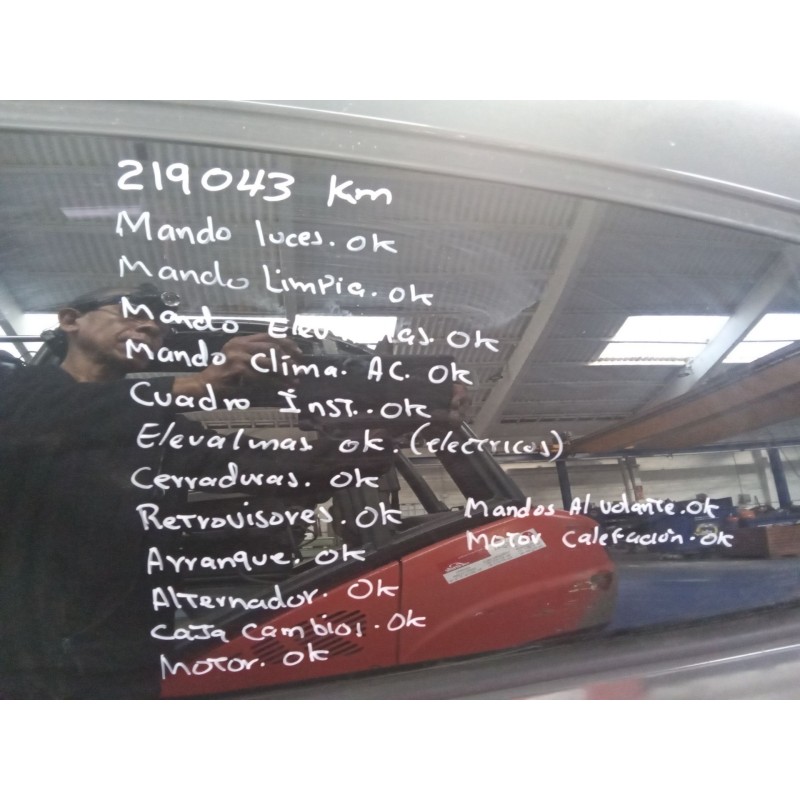 219043 Km
Mando luces. ok
Mando Limpia. ok
Mando Elevalunas. ok
Mando Clima. AC. ok
Cuadro Inst.. ok
Elevalunas ok. (electricos)
Cerraduras. ok
Retrovisores. ok
Arranque. ok
Alternador. ok
Caja cambios. ok
Motor. ok
Mandos Al volante. ok
Motor Calefacción. ok